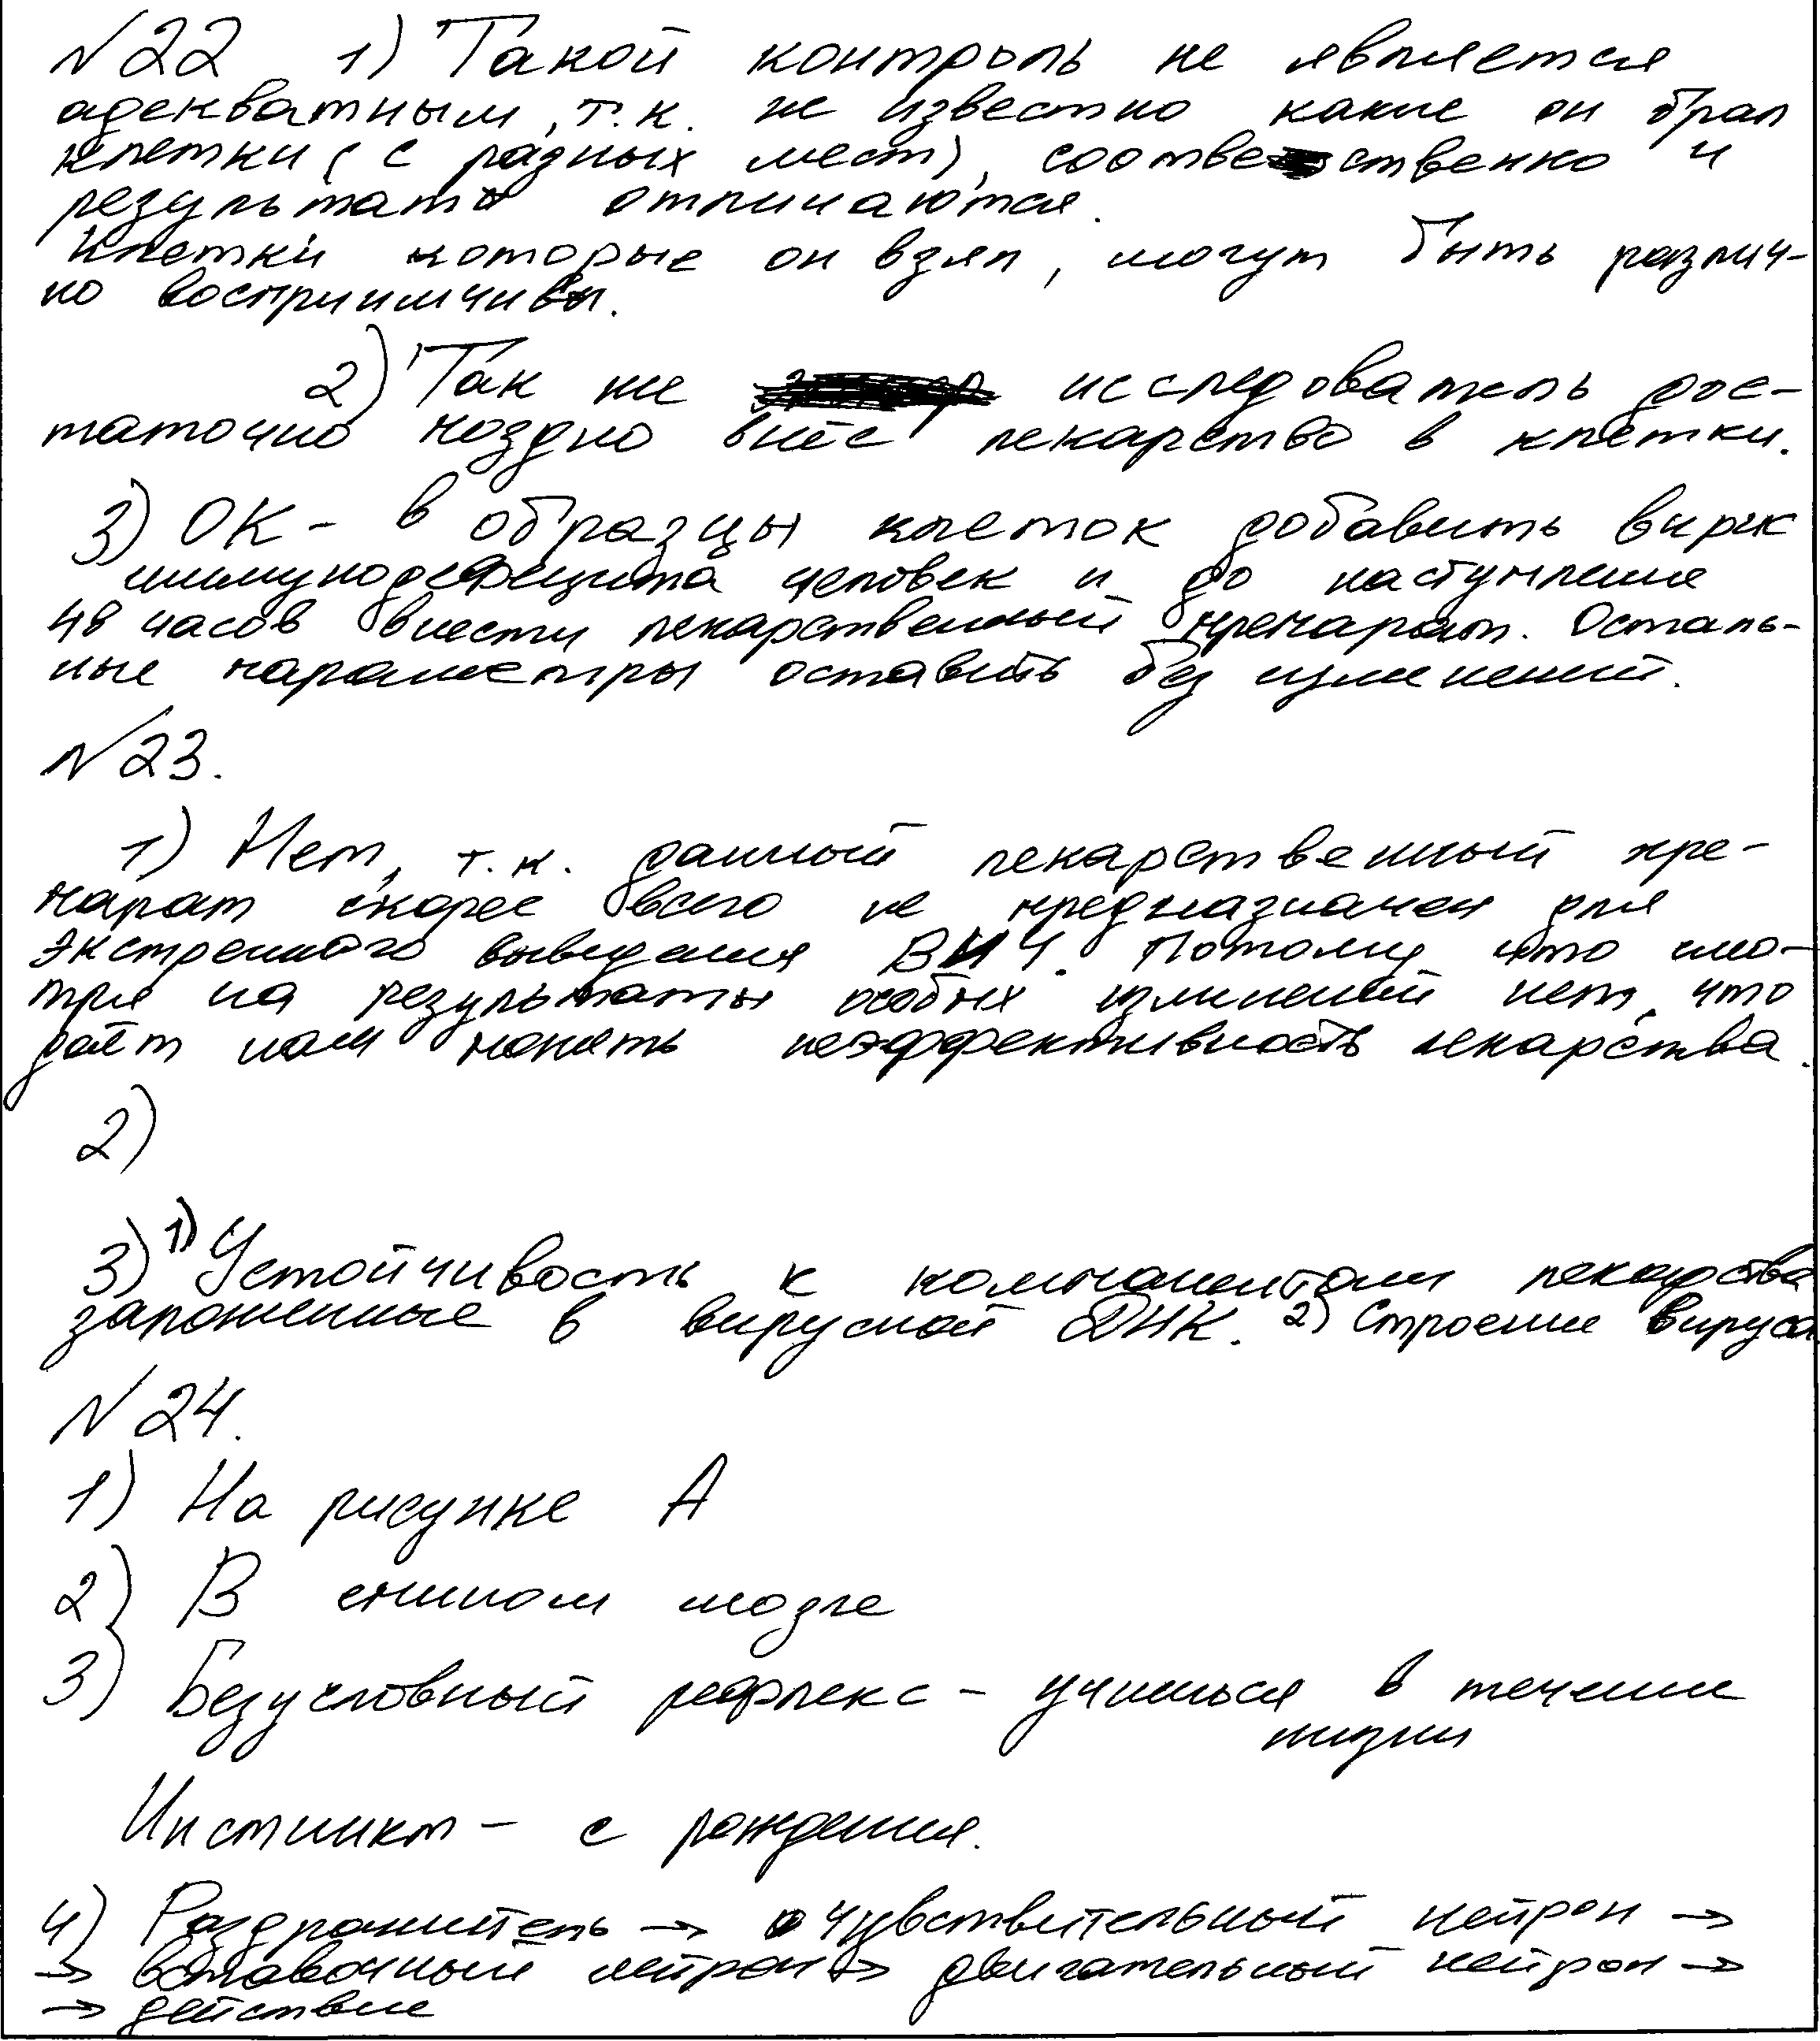 №22 1) Такой контроль не является
адекватным, т.к. не известно какие он брал
клетки (с разных мест), соотве ственно и
результаты отличаются.
Клетки которые он взял, могут быть различ-
но восприимчивы.
2) Так же исследователь дос-
таточно поздно внёс лекарство в клетки.
3) ОК - в образцы клеток добавить вирус
иммунодефицита человек и до наступления
48 часов внести лекарственный препарат. Осталь-
ные параметры оставить без изменений.
№23.
1) Нет, т.к. данный лекарственный пре-
парат скорее всего не предназначен для
экстренного выведения ВИЧ. Потому что смо-
тря на результаты особых изменений нет, что
даёт нам понять неэффективность лекарства.
2)
3) 1) Устойчивость к компонентам лекарства
заложенные в вирусной ДНК. 2) Строение вируса
№24.
1) На рисунке А
2) В спином мозге
3) Безусловный рефлекс - учишься в течении
жизни
Инстинкт - с рождения.
4) Раздражитель → чувствительный нейрон →
→ вставочный нейрон → двигательный нейрон →
→ действие